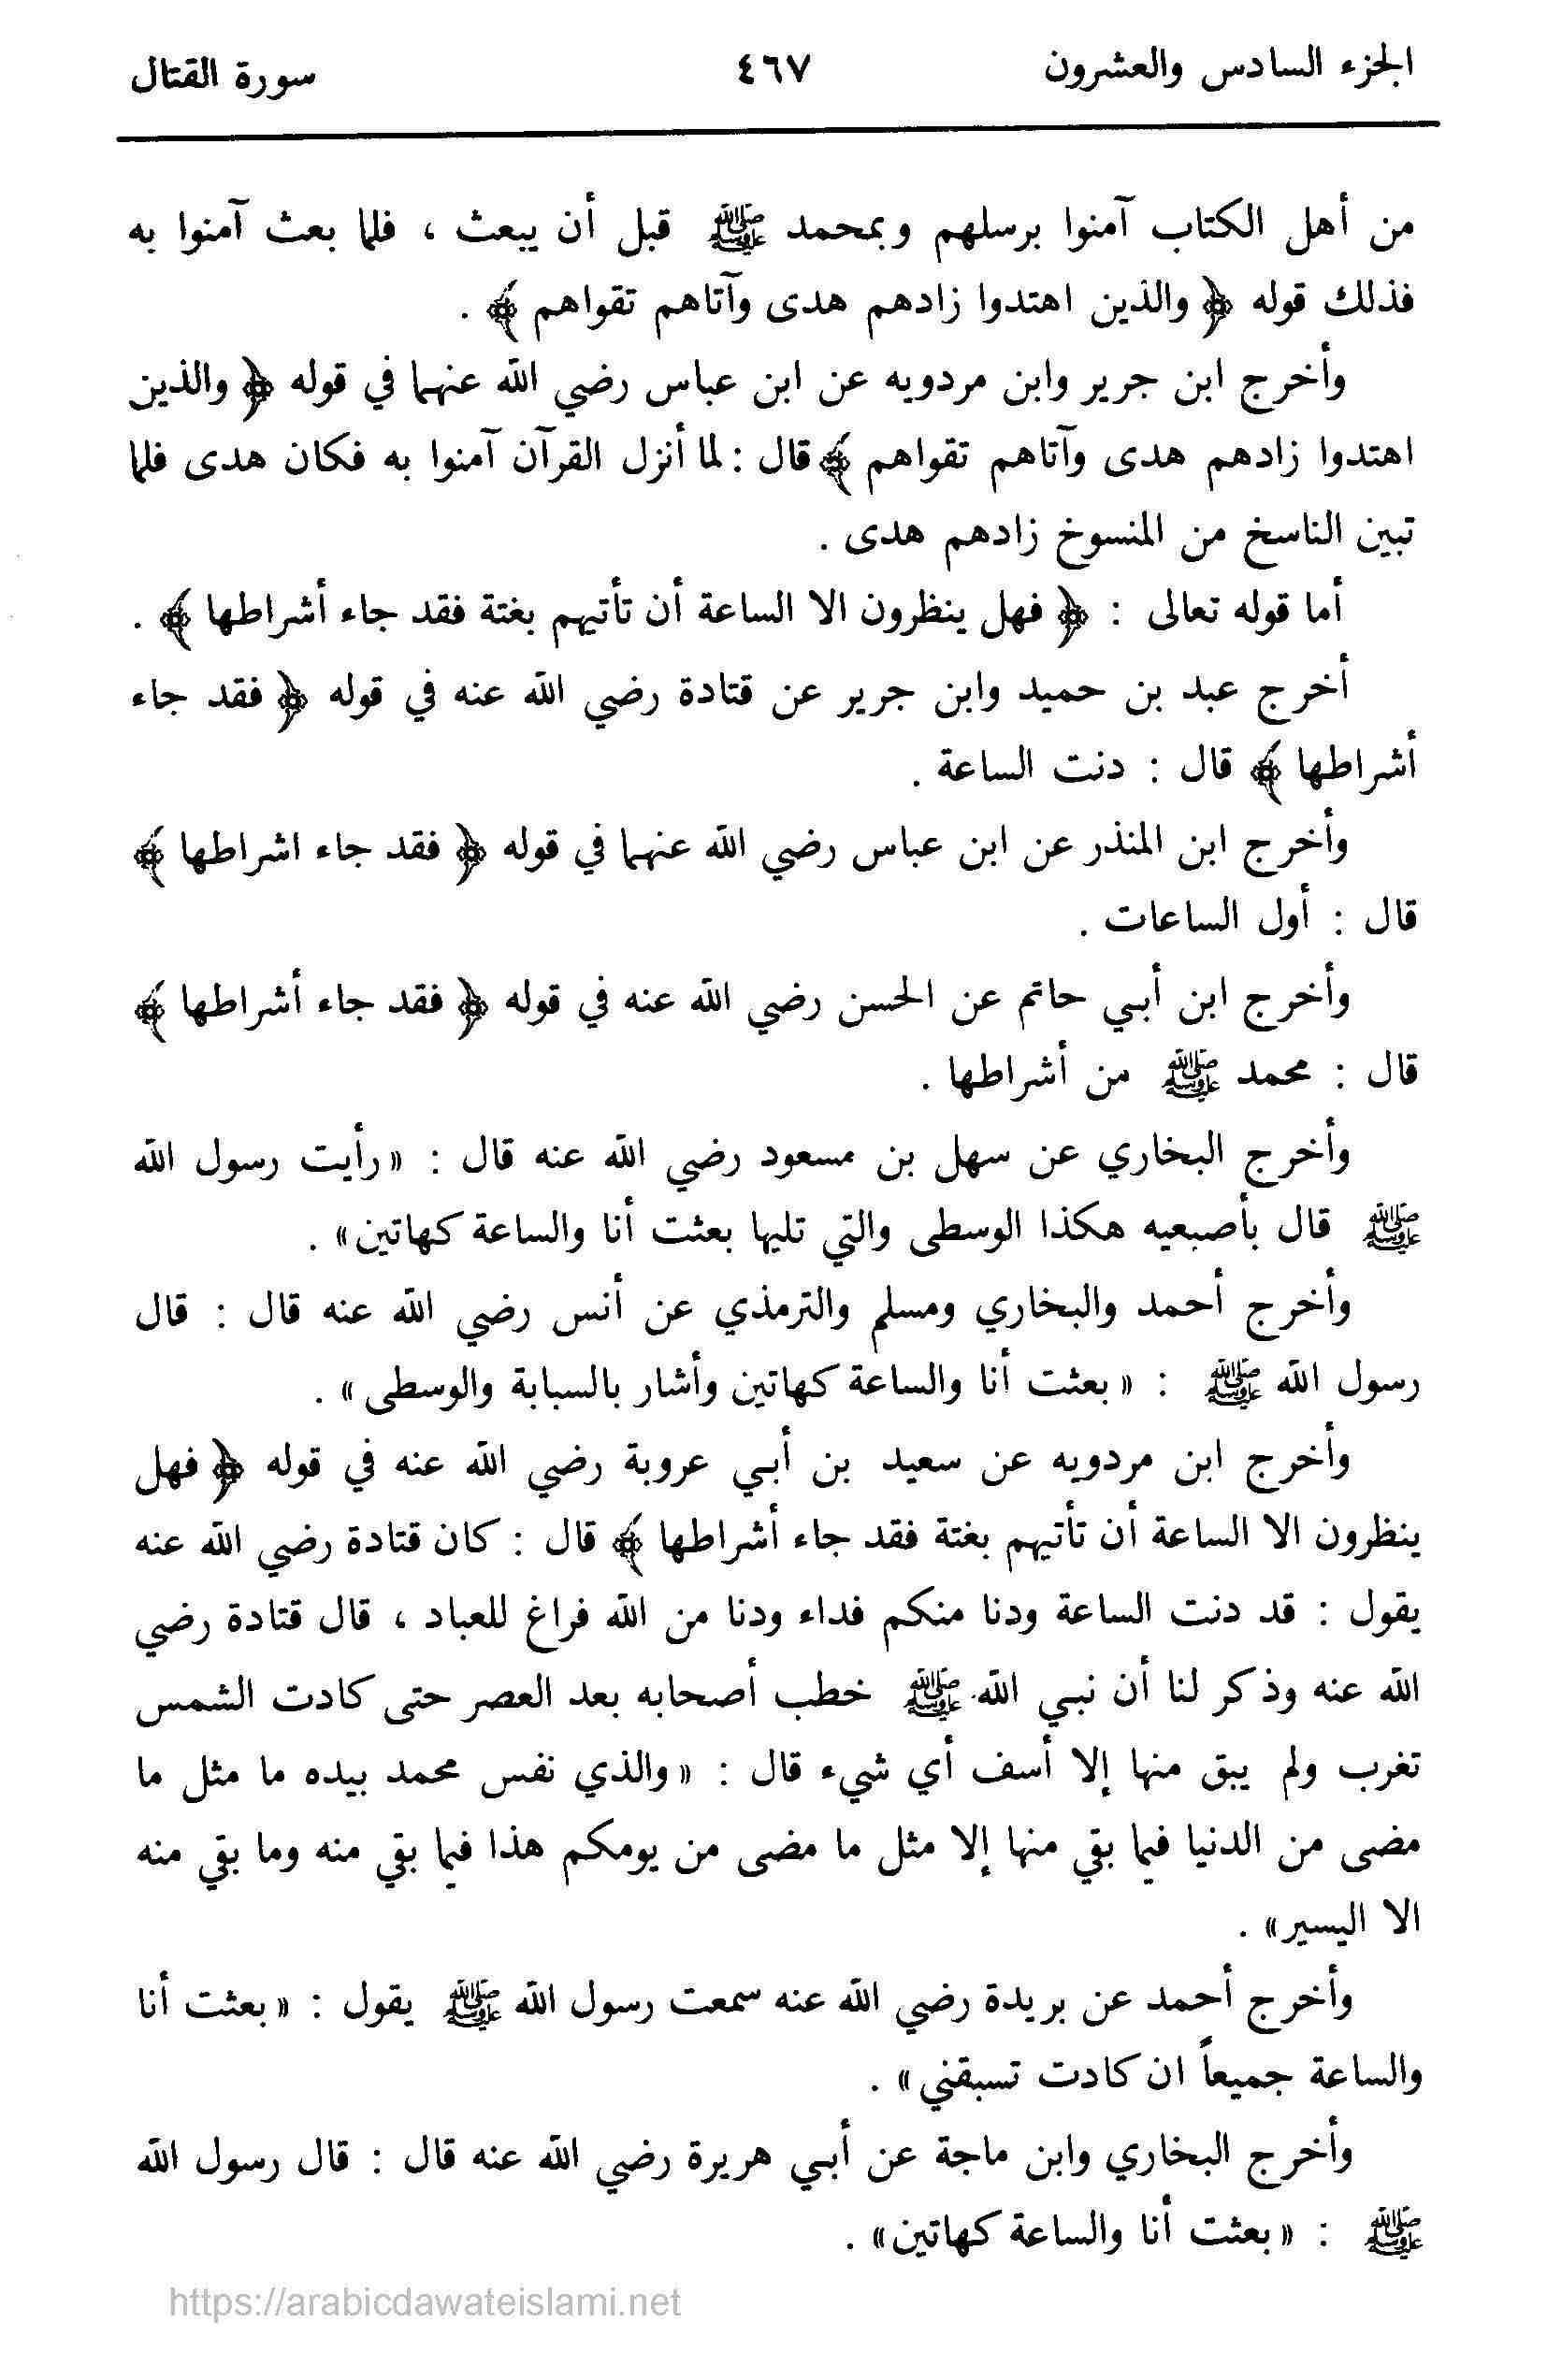 الجزء السادس والعشرون ٤٦٧ سورة القتال
من أهل الكتاب آمنوا برسلهم وبمحمد ﷺ قبل أن يبعث ، فلما بعث آمنوا به
فذلك قوله ﴿ والذين اهتدوا زادهم هدى وآتاهم تقواهم ﴾ .
وأخرج ابن جرير وابن مردويه عن ابن عباس رضي الله عنهما في قوله ﴿ والذين
اهتدوا زادهم هدى وآتاهم تقواهم ﴾ قال : لما أنزل القرآن آمنوا به فكان هدى فلما
تبين الناسخ من المنسوخ زادهم هدى .
أما قوله تعالى : ﴿ فهل ينظرون الا الساعة أن تأتيهم بغتة فقد جاء أشراطها ﴾ .
أخرج عبد بن حميد وابن جرير عن قتادة رضي الله عنه في قوله ﴿ فقد جاء
أشراطها ﴾ قال : دنت الساعة .
وأخرج ابن المنذر عن ابن عباس رضي الله عنهما في قوله ﴿ فقد جاء اشراطها ﴾
قال : أول الساعات .
وأخرج ابن أبي حاتم عن الحسن رضي الله عنه في قوله ﴿ فقد جاء أشراطها ﴾
قال : محمد ﷺ من أشراطها .
وأخرج البخاري عن سهل بن مسعود رضي الله عنه قال : « رأيت رسول الله
ﷺ قال بأصبعيه هكذا الوسطى والتي تليها بعثت أنا والساعة كهاتين » .
وأخرج أحمد والبخاري ومسلم والترمذي عن أنس رضي الله عنه قال : قال
رسول الله ﷺ : « بعثت أنا والساعة كهاتين وأشار بالسبابة والوسطى » .
وأخرج ابن مردويه عن سعيد بن أبي عروبة رضي الله عنه في قوله ﴿ فهل
ينظرون الا الساعة أن تأتيهم بغتة فقد جاء أشراطها ﴾ قال : كان قتادة رضي الله عنه
يقول : قد دنت الساعة ودنا منكم فداء ودنا من الله فراغ للعباد ، قال قتادة رضي
الله عنه وذكر لنا أن نبي الله ﷺ خطب أصحابه بعد العصر حتى كادت الشمس
تغرب ولم يبق منها إلا أسف أي شيء قال : « والذي نفس محمد بيده ما مثل ما
مضى من الدنيا فيما بقي منها إلا مثل ما مضى من يومكم هذا فيما بقي منه وما بقي منه
الا اليسير » .
وأخرج أحمد عن بريدة رضي الله عنه سمعت رسول الله ﷺ يقول : « بعثت أنا
والساعة جميعاً ان كادت تسبقني » .
وأخرج البخاري وابن ماجة عن أبي هريرة رضي الله عنه قال : قال رسول الله
ﷺ : « بعثت أنا والساعة كهاتين » .
https://arabicdawateislami.net